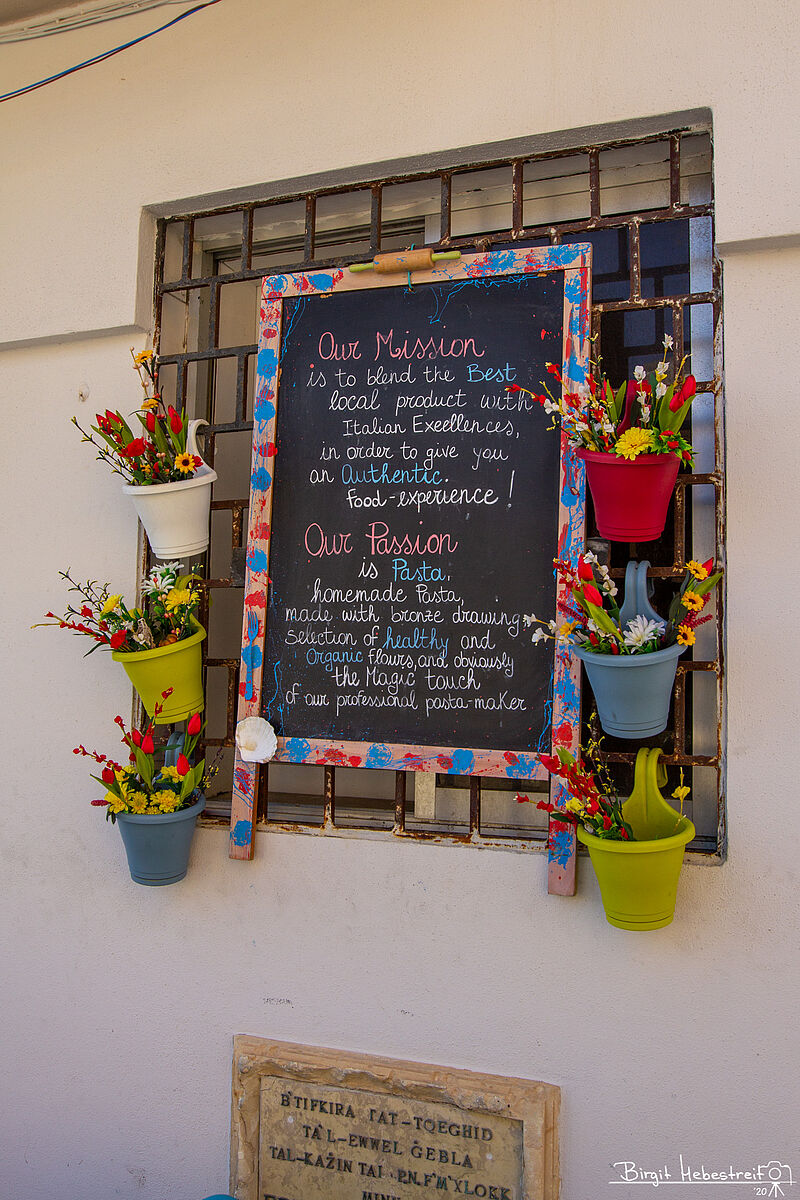 Our Mission
is to blend the Best
local product with
Italian Exeellences,
in order to give you
an Authentic.
Food-experience!
Our Passion
is Pasta,
homemade Pasta,
made with bronze drawing
selection of healthy and
Organic flours, and obviously
the Magic touch
of our professional pasta-maker
B'TIFKIRA TAT-TQEGĦID
TA' L-EWWEL ĠEBLA
TAL-KAŻIN TAL-P.N. F'M'XLOKK
MINN
Birgit Hebestreit
'20